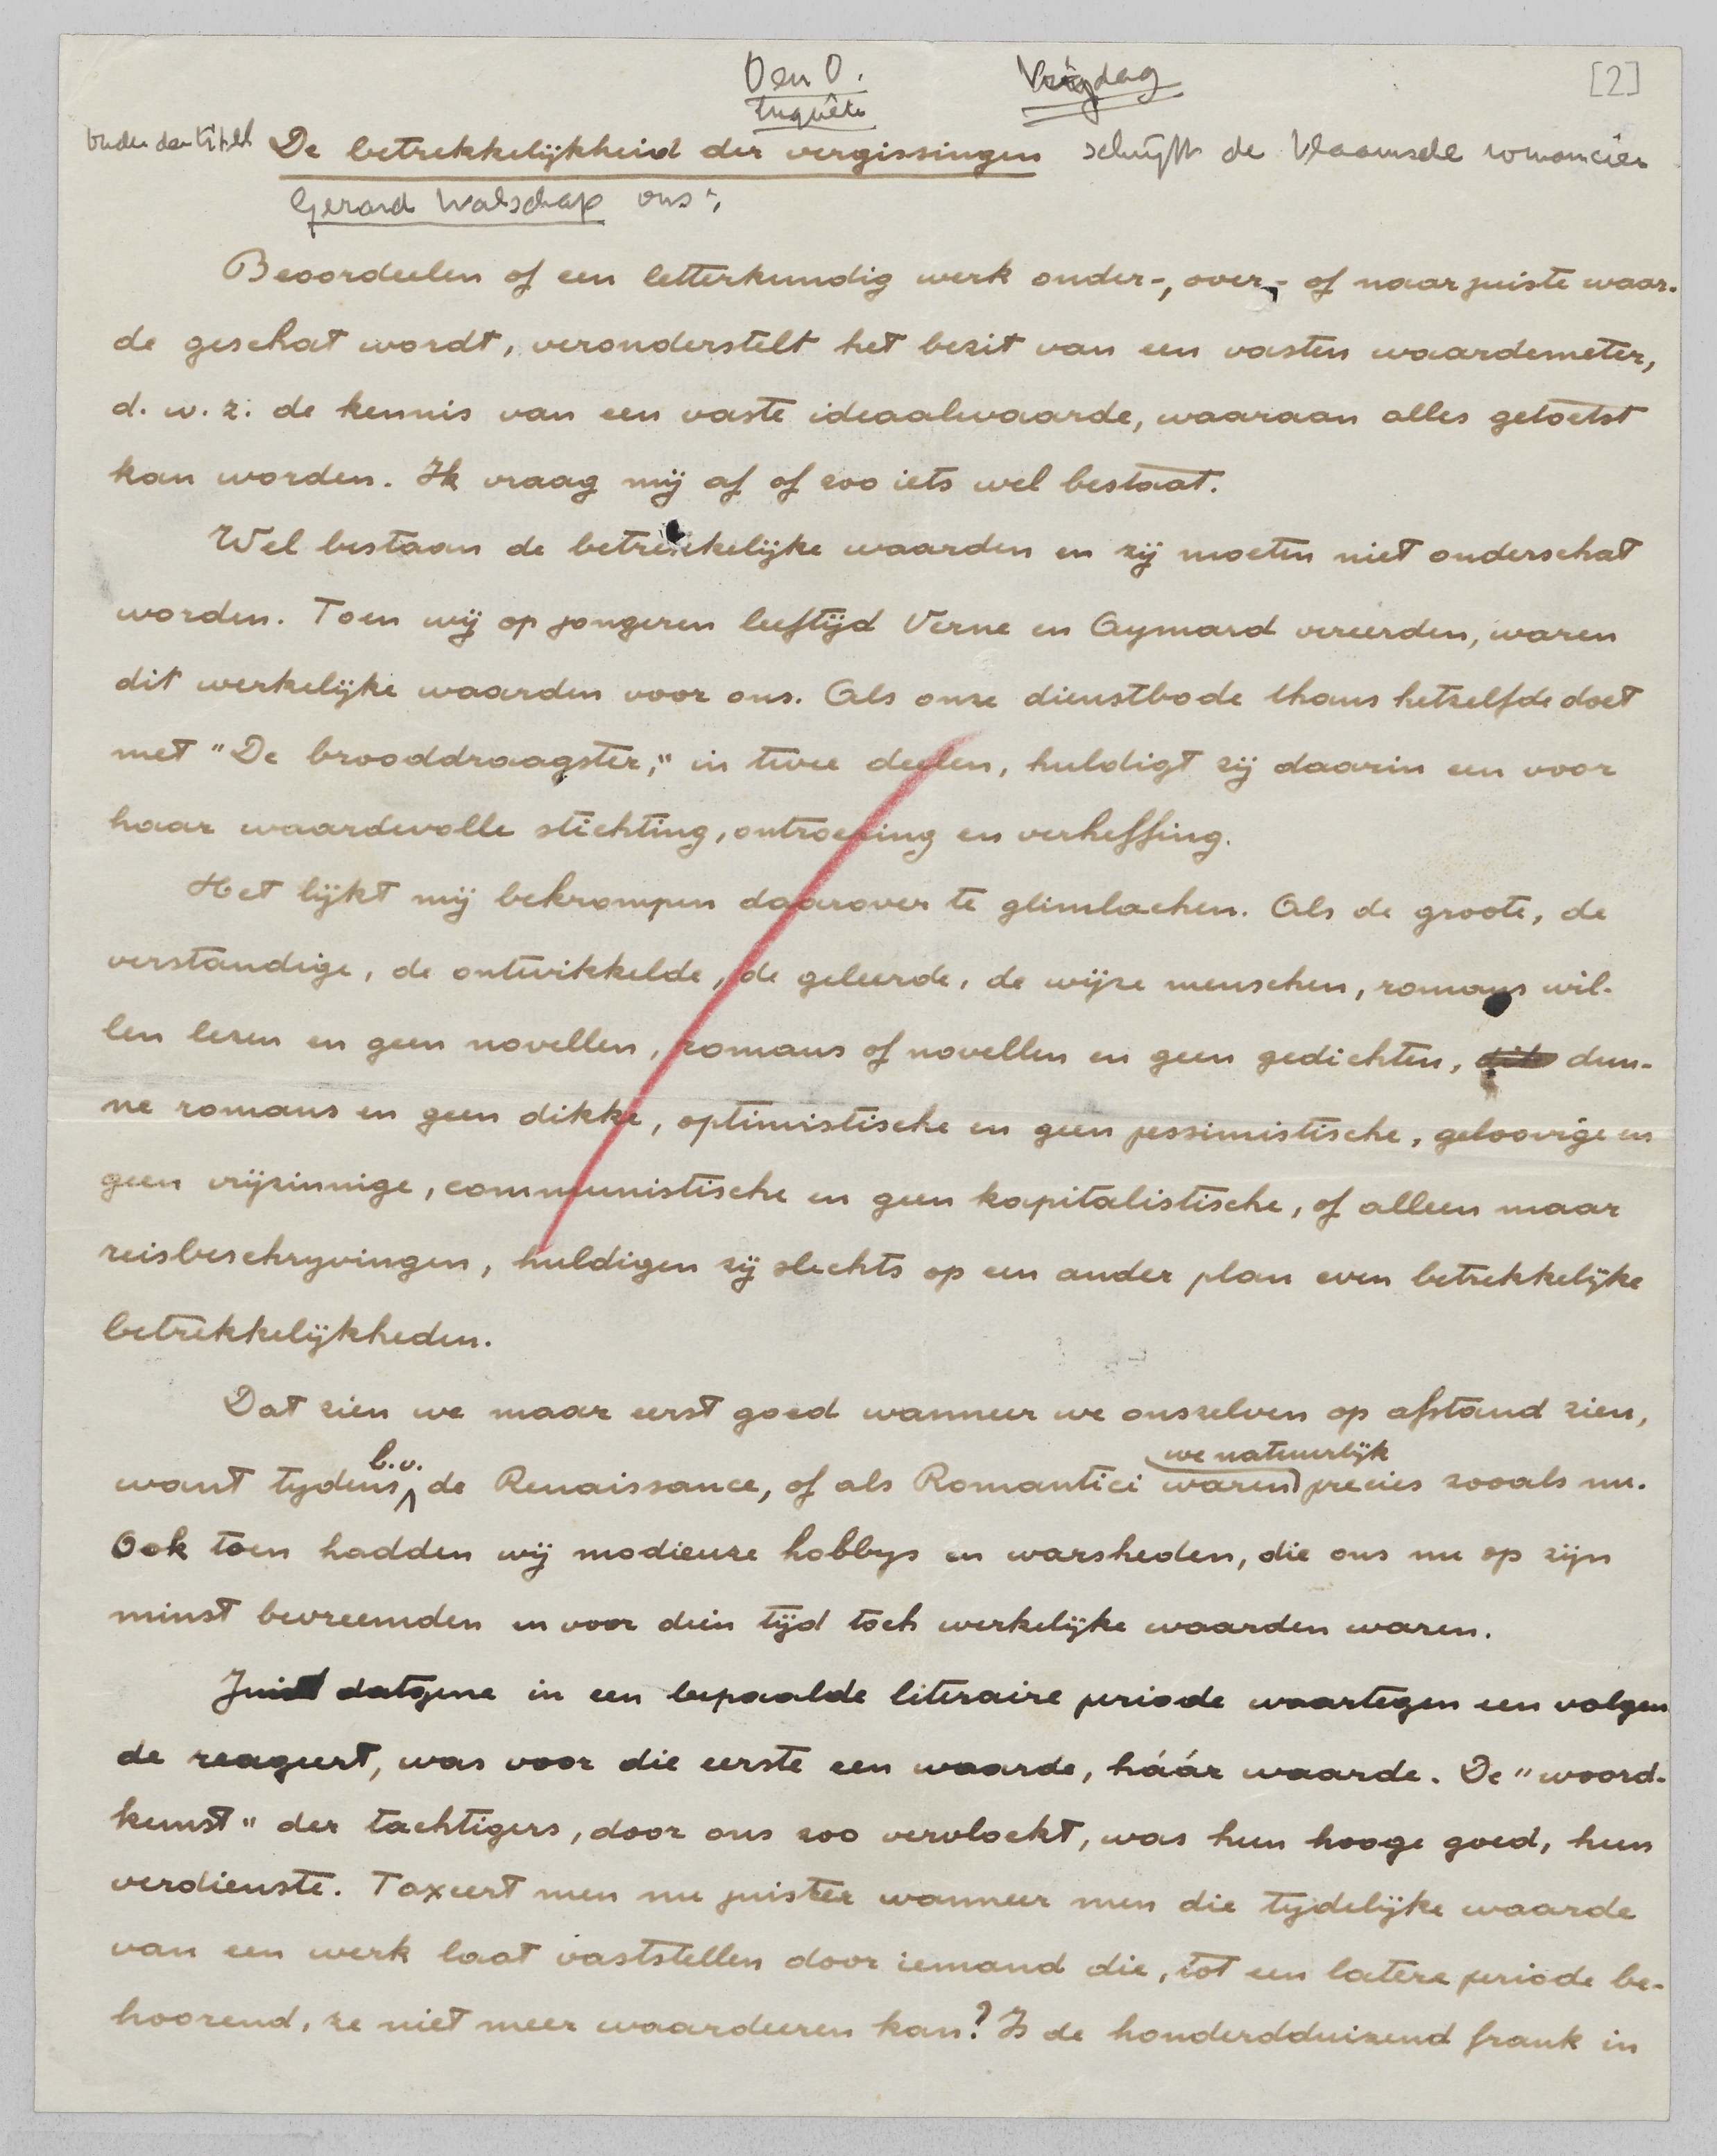 O en O. Vrijdag [2]
Enquête
Onder den titel De betrekkelijkheid der vergissingen schrijft de Vlaamsche romancier
Gerard Walschap ons:
Beoordeelen of een letterkundig werk onder-, over- of naar juiste waar-
de geschat wordt, veronderstelt het bezit van een vasten waardemeter,
d. w. z. de kennis van een vaste ideaalwaarde, waaraan alles getoetst
kan worden. Ik vraag mij af of zoo iets wel bestaat.
Wel bestaan de betrekkelijke waarden en zij moeten niet onderschat
worden. Toen wij op jongeren leeftijd Verne en Aymard vereerden, waren
dit werkelijke waarden voor ons. Als onze dienstbode thans hetzelfde doet
met "De brooddraagster," in twee deelen, huldigt zij daarin een voor
haar waardevolle stichting, ontroering en verheffing.
Het lijkt mij bekrompen daarover te glimlachen. Als de groote, de
verstandige, de ontwikkelde, de geleerde, de wijze menschen, romans wil-
len lezen en geen novellen, romans of novellen en geen gedichten, dun-
ne romans en geen dikke, optimistische en geen pessimistische, geloovige en
geen vrijzinnige, communistische en geen kapitalistische, of alleen maar
reisbeschryvingen, huldigen zij slechts op een ander plan even betrekkelijke
betrekkelijkheden.
Dat zien we maar eerst goed wanneer we onszelven op afstand zien,
want tydens b.v. de Renaissance, of als Romantici waren we natuurlijk precies zooals nu.
Ook toen hadden wij modieuze hobbys en warsheden, die ons nu op zijn
minst bevreemden en voor dien tijd toch werkelijke waarden waren.
Juist datgene in een bepaalde literaire periode waartegen een volgen
de reageert, was voor die eerste een waarde, háár waarde. De "woord-
kunst" der tachtigers, door ons zoo vervloekt, was hun hooge goed, hun
verdienste. Taxeert men nu juister wanneer men die tijdelijke waarde
van een werk laat vaststellen door iemand die, tot een latere periode be-
hoorend, ze niet meer waardeeren kan? Is de honderdduizend frank in